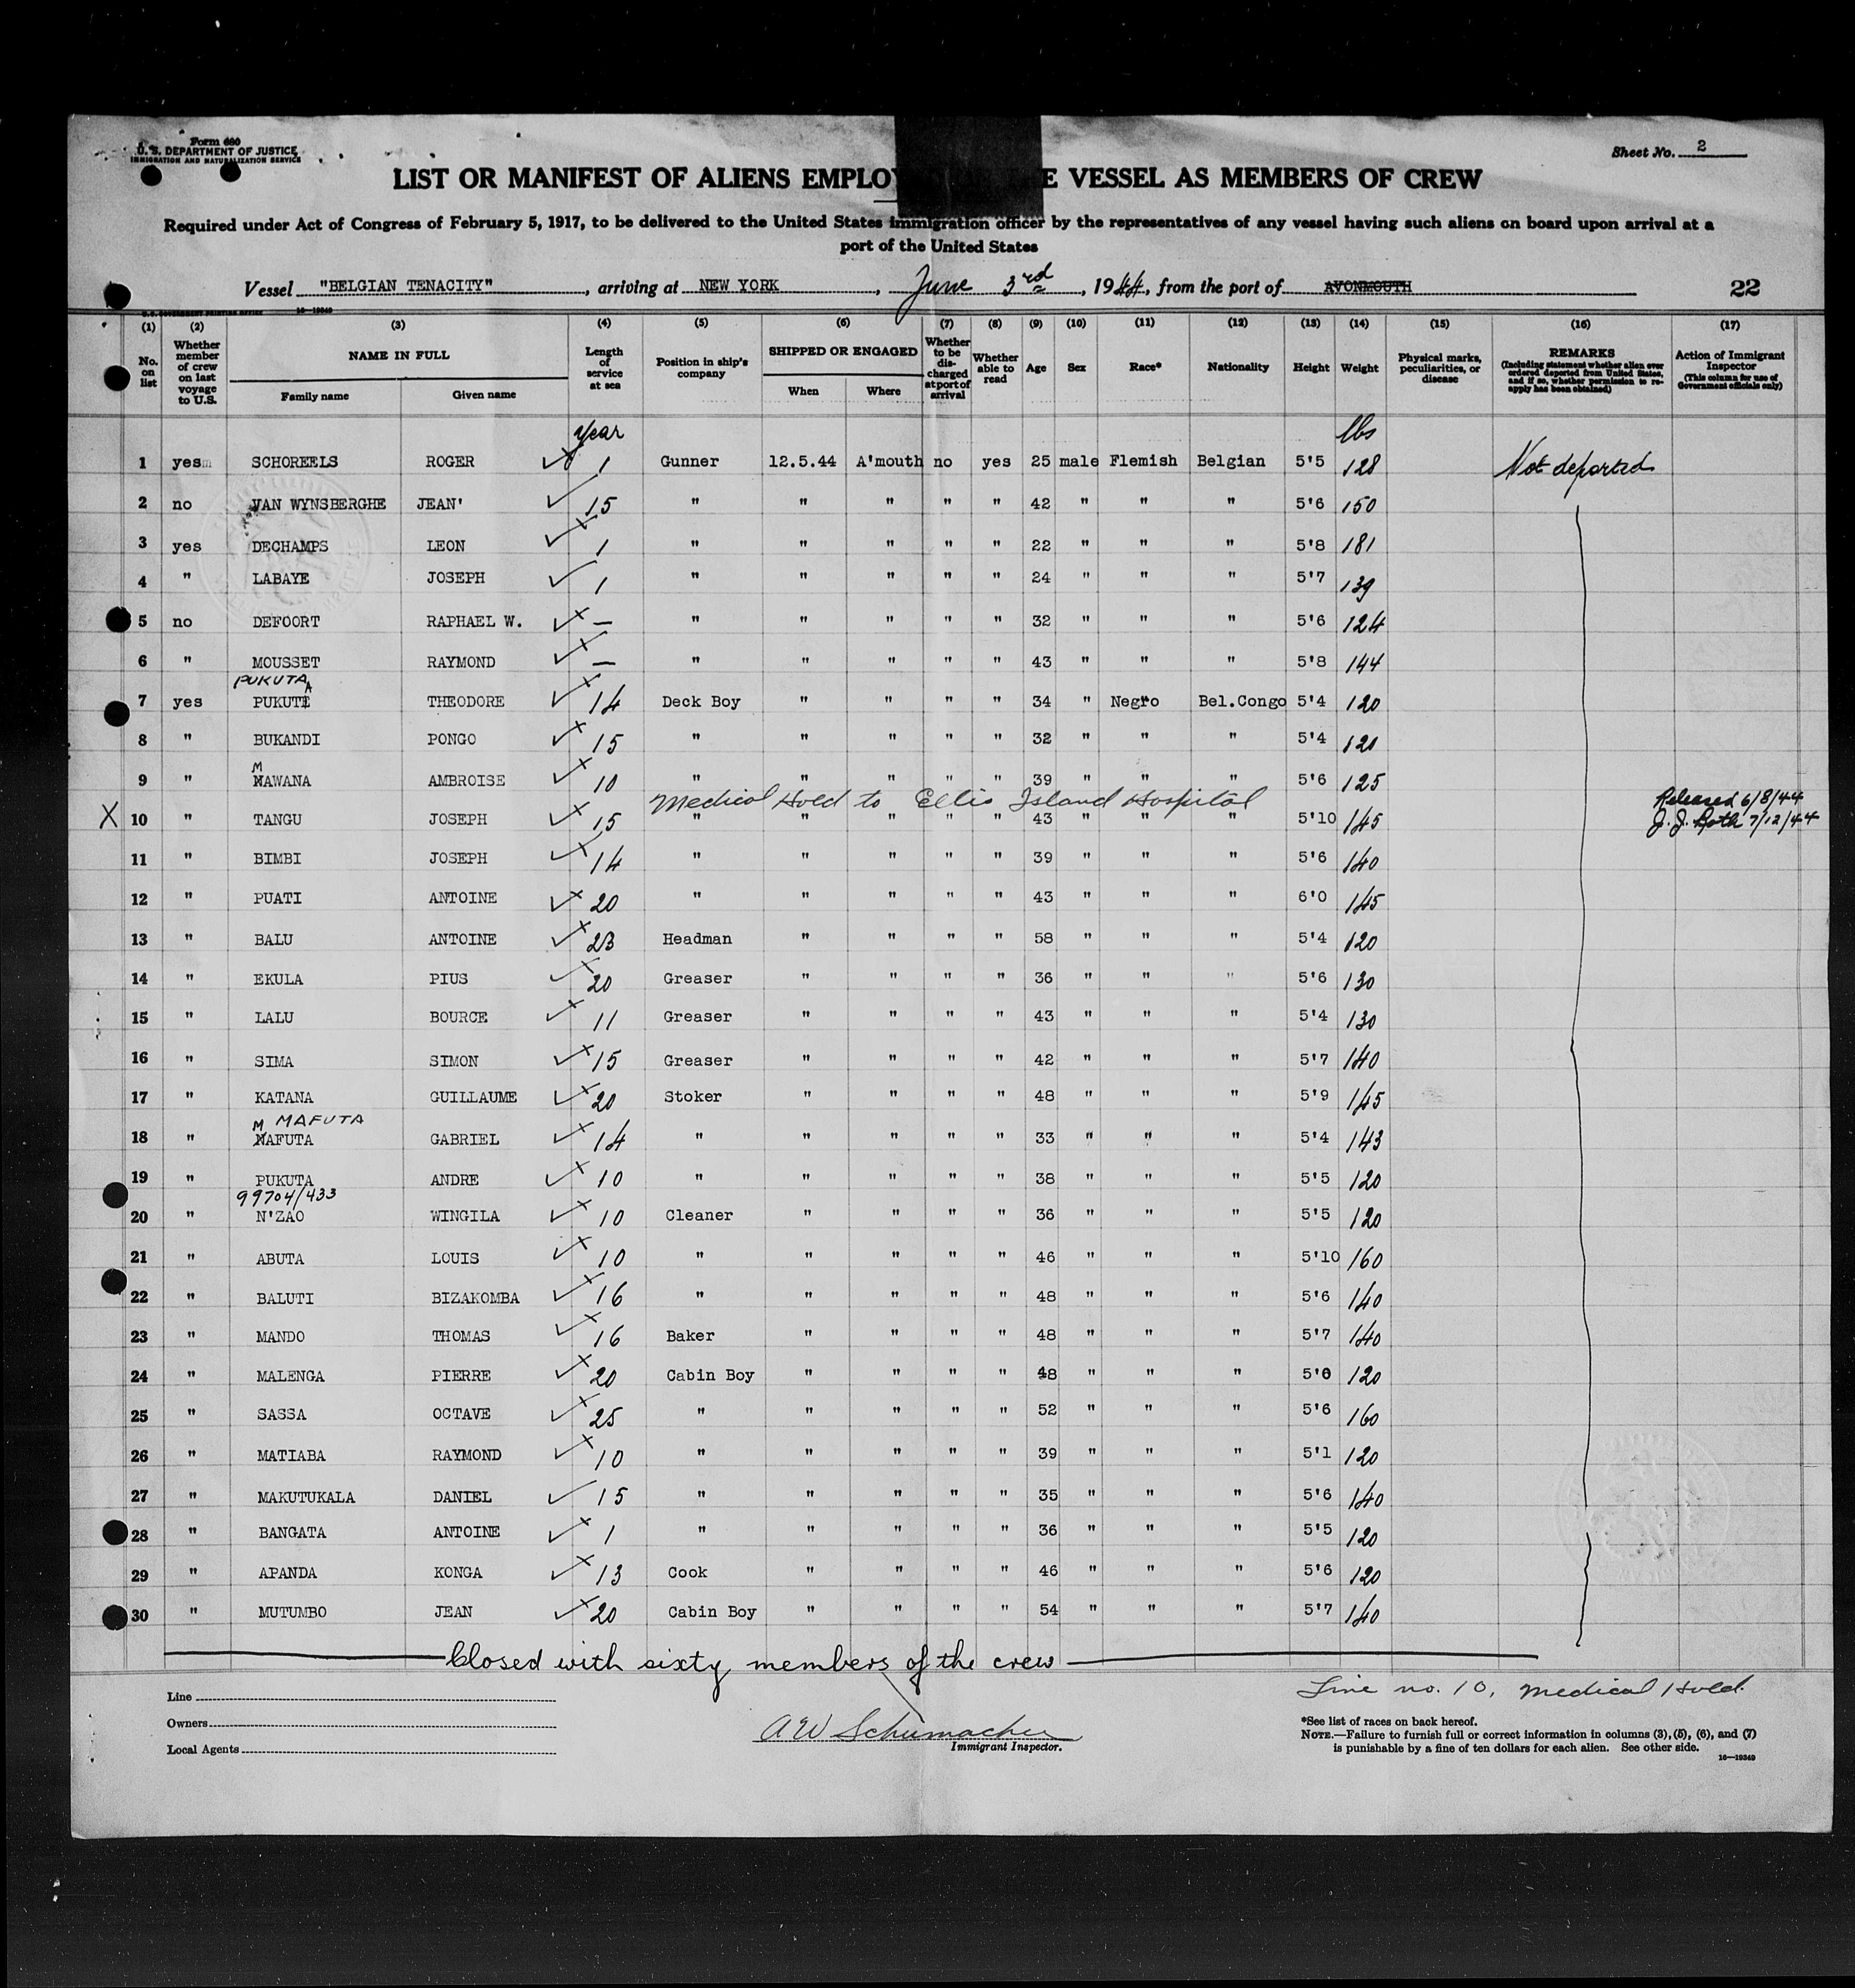 Form 680
U. S. DEPARTMENT OF JUSTICE
IMMIGRATION AND NATURALIZATION SERVICE
Sheet No. 2
LIST OR MANIFEST OF ALIENS EMPLO E VESSEL AS MEMBERS OF CREW
Required under Act of Congress of February 5, 1917, to be delivered to the United States immigration officer by the representatives of any vessel having such aliens on board upon arrival at a
port of the United States
Vessel "BELGIAN TENACITY", arriving at NEW YORK, June 3rd, 1944, from the port of AVONMOUTH 22
U.S. GOVERNMENT PRINTING OFFICE 16—19349
(1) (2) (3) (4) (5) (6) (7) (8) (9) (10) (11) (12) (13) (14) (15) (16) (17)
No. on list Whether member of crew on last voyage to U.S. NAME IN FULL Family name Given name Length of service at sea Position in ship's company SHIPPED OR ENGAGED When Where Whether to be discharged at port of arrival Whether able to read Age Sex Race* Nationality Height Weight Physical marks, peculiarities, or disease REMARKS (Including statement whether alien ever ordered deported from United States, and if so, whether permission to reapply has been obtained) Action of Immigrant Inspector (This column for use of Government officials only)
year lbs
1 yes SCHOREELS ROGER 1 Gunner 12.5.44 A'mouth no yes 25 male Flemish Belgian 5'5 128 Not deported
2 no VAN WYNSBERGHE JEAN' 15 " " " " " 42 " " " 5'6 150
3 yes DECHAMPS LEON 1 " " " " " 22 " " " 5'8 181
4 " LABAYE JOSEPH 1 " " " " " 24 " " " 5'7 139
5 no DEFOORT RAPHAEL W. — " " " " " 32 " " " 5'6 124
6 " MOUSSET RAYMOND — " " " " " 43 " " " 5'8 144
PUKUTA A
7 yes PUKUTE THEODORE 14 Deck Boy " " " " 34 " Negro Bel.Congo 5'4 120
8 " BUKANDI PONGO 15 " " " " " 32 " " " 5'4 120
M
9 " NAWANA AMBROISE 10 " " " " " 39 " " " 5'6 125
Medical Hold to Ellis Island Hospital Released 6/8/44
X 10 " TANGU JOSEPH 15 " " " " " 43 " " " 5'10 145 J. J. Roth 7/12/44
11 " BIMBI JOSEPH 14 " " " " " 39 " " " 5'6 140
12 " PUATI ANTOINE 20 " " " " " 43 " " " 6'0 145
13 " BALU ANTOINE 23 Headman " " " " 58 " " " 5'4 120
14 " EKULA PIUS 20 Greaser " " " " 36 " " " 5'6 130
15 " LALU BOURCE 11 Greaser " " " " 43 " " " 5'4 130
16 " SIMA SIMON 15 Greaser " " " " 42 " " " 5'7 140
17 " KATANA GUILLAUME 20 Stoker " " " " 48 " " " 5'9 145
M MAFUTA
18 " NAFUTA GABRIEL 14 " " " " " 33 " " " 5'4 143
19 " PUKUTA ANDRE 10 " " " " " 38 " " " 5'5 120
99704/433
20 " N'ZAO WINGILA 10 Cleaner " " " " 36 " " " 5'5 120
21 " ABUTA LOUIS 10 " " " " " 46 " " " 5'10 160
22 " BALUTI BIZAKOMBA 16 " " " " " 48 " " " 5'6 140
23 " MANDO THOMAS 16 Baker " " " " 48 " " " 5'7 140
24 " MALENGA PIERRE 20 Cabin Boy " " " " 48 " " " 5'0 120
25 " SASSA OCTAVE 25 " " " " " 52 " " " 5'6 160
26 " MATIABA RAYMOND 10 " " " " " 39 " " " 5'1 120
27 " MAKUTUKALA DANIEL 15 " " " " " 35 " " " 5'6 140
28 " BANGATA ANTOINE 1 " " " " " 36 " " " 5'5 120
29 " APANDA KONGA 13 Cook " " " " 46 " " " 5'6 120
30 " MUTUMBO JEAN 20 Cabin Boy " " " " 54 " " " 5'7 140
Closed with sixty members of the crew
Line no. 10, Medical Hold.
Line
Owners
Local Agents
A W Schumacher
Immigrant Inspector.
*See list of races on back hereof.
NOTE.—Failure to furnish full or correct information in columns (3), (5), (6), and (7)
is punishable by a fine of ten dollars for each alien. See other side.
16—19349